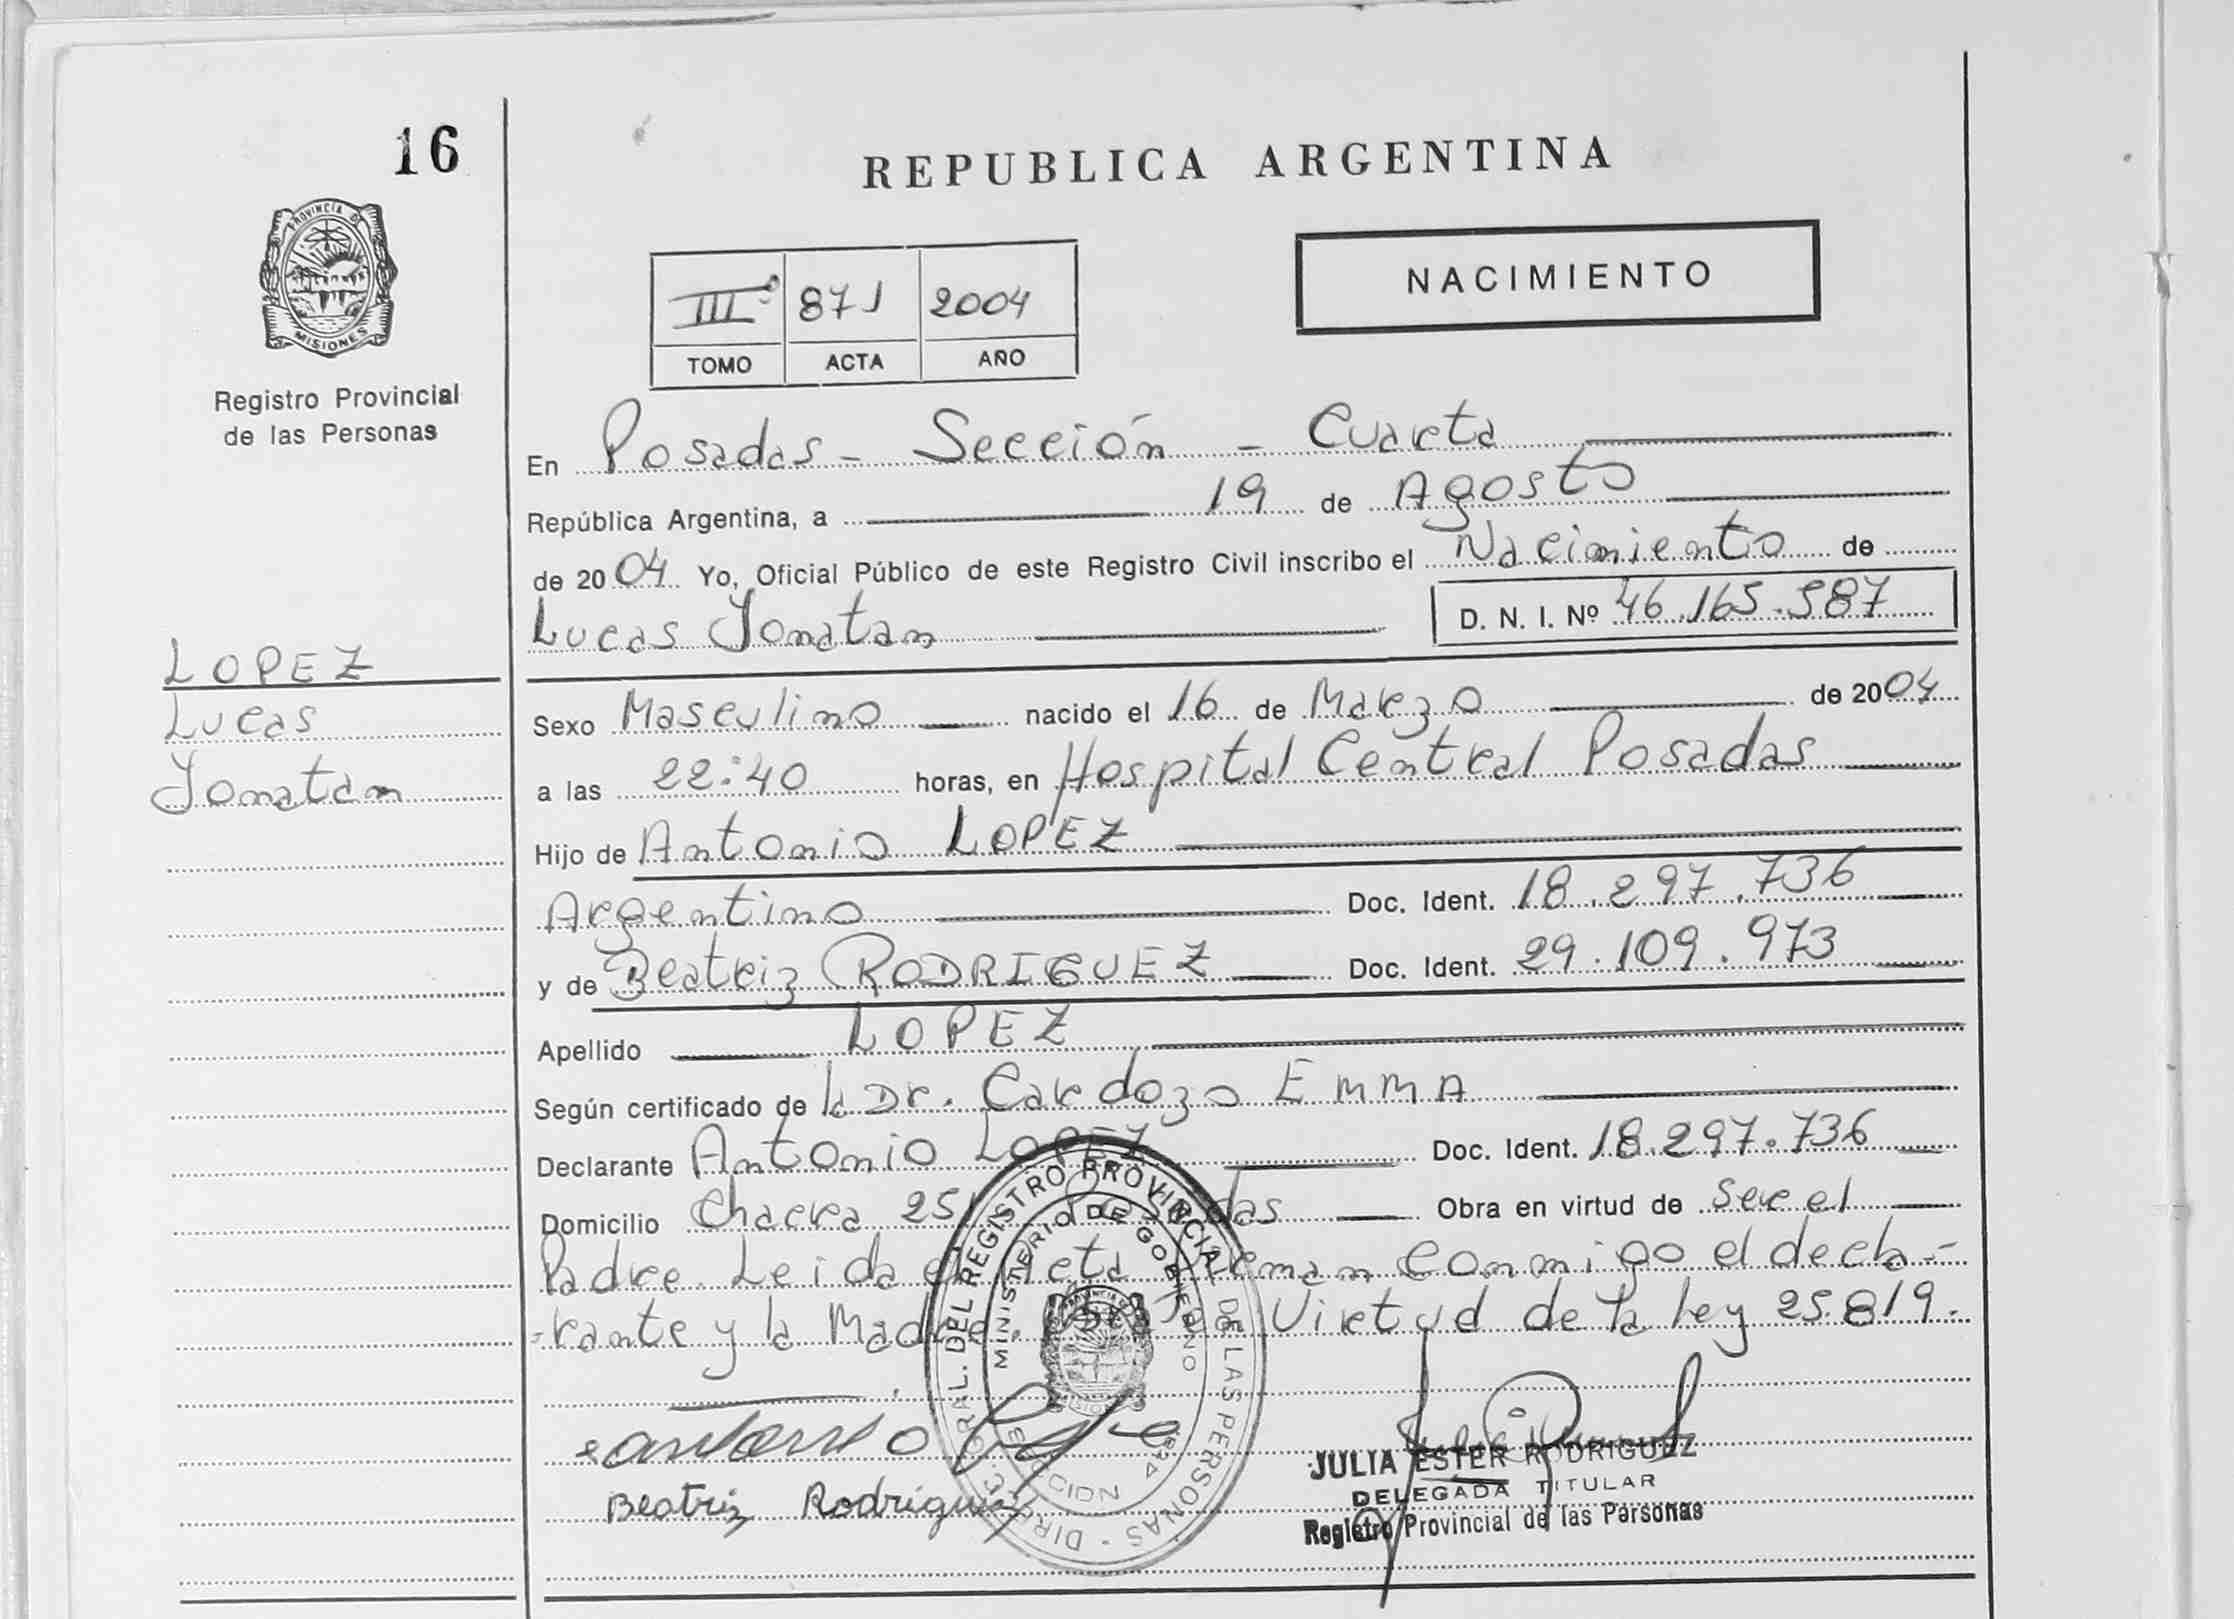 16
REPUBLICA ARGENTINA
PROVINCIA DE
MISIONES
Registro Provincial
de las Personas
NACIMIENTO
III° 871 2004
TOMO ACTA AÑO
En Posadas - Sección - Cuarta
República Argentina, a 19 de Agosto
de 2004 Yo, Oficial Público de este Registro Civil inscribo el Nacimiento de
Lucas Jonatan D. N. I. Nº 46.165.587
LOPEZ
Lucas
Jonatan
Sexo Masculino nacido el 16 de Marzo de 2004
a las 22:40 horas, en Hospital Central Posadas
Hijo de Antonio LOPEZ
Argentino Doc. Ident. 18.297.736
y de Beatriz RODRIGUEZ Doc. Ident. 29.109.973
Apellido LOPEZ
Según certificado de la Dr. Cardozo EMMA
Declarante Antonio LOPEZ Doc. Ident. 18.297.736
Domicilio Chacra 251 Posadas Obra en virtud de Ser el
Padre. Leida el Acta firman conmigo el decla-
-rante y la Madre. Virtud de la Ley 25.819.
DIRECC. GRAL. DEL REGISTRO PROVINCIAL DE LAS PERSONAS
MINISTERIO DE GOBIERNO
Antonio
Beatriz Rodriguez
JULIA ESTER RODRIGUEZ
DELEGADA TITULAR
Registro Provincial de las Personas